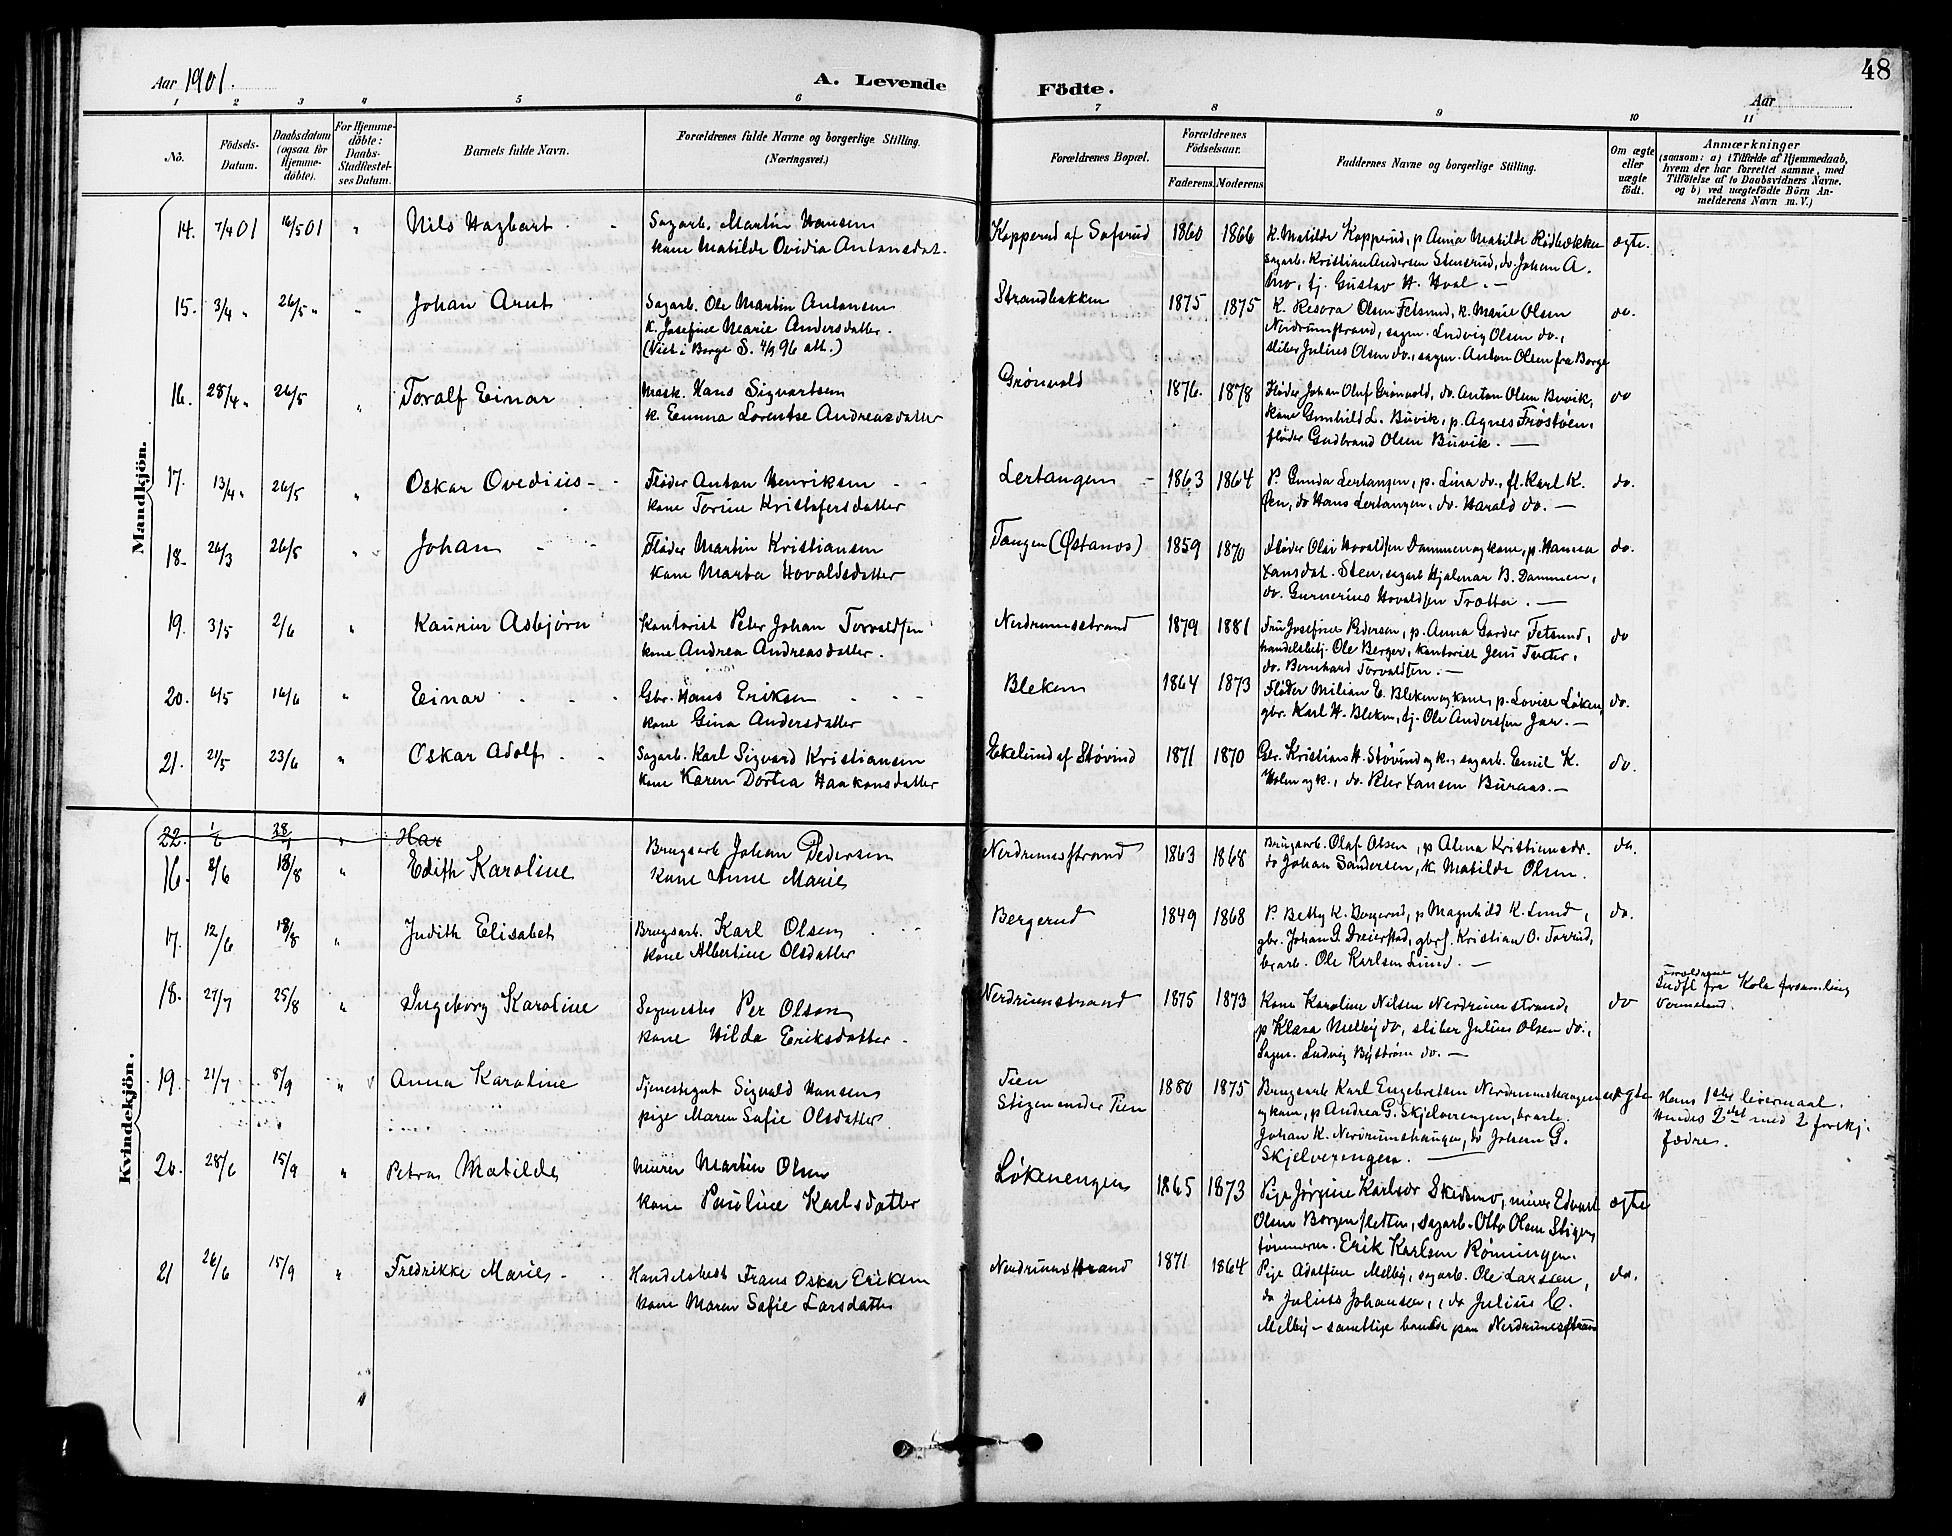 48
Aar 1901.
A. Levende
Födte.
Aar
1 2 3 4 5 6 7 8 9 10 11
No.
Födsels-
Datum.
Daabsdatum
(ogsaa for
Hjemme-
döbte).
For Hjemme-
döbte:
Daabs-
Stadfæstel-
ses Datum.
Barnets fulde Navn.
Forældrenes fulde Navne og borgerlige Stilling.
(Næringsvei.)
Forældrenes Bopæl.
Forældrenes
Födselsaar.
Faderens. Moderens.
Faddernes Navne og borgerlige Stilling.
Om ægte
eller
uægte
født.
Anmærkninger
(saasom: a) i Tilfælde af Hjemmedaab,
hvem der har forrettet samme, med
Tilföielse af to Daabsvidners Navne.
og b) ved uægtefödte Börn An-
melderens Navn m. V.)
Mandkjön.
14. 7/4 01 16/5 01 " Nils Hagbart
Sagarb. Martin Hansen
kone Matilde Ovidia Antonsdat.
Kopperud af Sofsrud 1860 1866
K. Matilde Kopperud, p Anna Matilde Rödbækken
sagarb. Kristian Andersen Stensrud, do. Johan A.
Mo, tj. Gustav H. Hval. —
ægte.
15. 3/4 " 26/5 " " Johan Arnt
Sagarb. Ole Martin Antonsen
k. Josefine Marie Andersdatter.
(Viet i Borge S. 4/9 96 att.)
Strandbakken 1875 1875
K. Resora Olsen Fetsund, k. Marie Olsen
Nerdrumstrand, sagm. Ludvig Olsen do.,
sliber Julius Olsen do., sagm. Anton Olsen fra Borge
do.
16. 28/4 " 26/5 " Toralf Einar
Mask. Hans Sigvartsen
k. Emma Lorentse Andreasdatter
Grönvold 1876. 1878
Fløder Johan Oluf Grönvold, do. Anton Olsen Buvik,
kone Gunhild L. Buvik, p. Agnes Fröstöen,
fløder Gudbrand Olsen Buvik. —
do
17. 13/4 " 26/5 " Oskar Ovedius
Fløder Anton Henriksen
kone Torine Kristofersdatter
Lertangen 1863 1864
P. Gunda Lertangen, p. Lina do., fl. Karl K.
Øen, do Hans Lertangen, do. Harald do. —
do.
18. 26/3 26/5 " Johan
Fløder Martin Kristiansen
kone Marta Hovaldsdatter
Tangen (Østanos) 1859 1870
Fløder Olai Hovaldsen Dammen og kone, p. Hanna
Hansdat. Sten, sagarb Hjalmar B. Dammen,
do. Gunnerius Hovaldsen Tratter. —
do.
19. 3/5 2/6 " Kaurin Asbjørn
Kontorist Peter Johan Torvaldsen
kone Andrea Andreasdatter.
Nerdrumsstrand 1879 1881
Fru Josefine Pedersen, p. Anna Garder Fetsund,
handelsbetj. Ole Berger, kontorist Jens Tæter,
do. Bernhard Torvaldsen. —
do
20. 6/5 16/6 " Einar
Gbr. Hans Eriksen
kone Gina Andersdatter
Bleken 1864 1873
Fløder Milian E. Bleken og kone, p. Lovise Løken,
gbr. Karl H. Bleken, tj. Ole Andersen Jar. —
do.
21. 21/5 23/6 " Oskar Adolf
Sagarb. Karl Sigvard Kristiansen
kone Karen Dortea Haakonsdatter
Ekelund af Støvind 1871 1870
Gbr. Kristian H. Støvind og k., sagarb. Emil K.
Holm og k., do. Peter Hansen Buraas. —
do.
Kvindekjön.
22. 1/6 28 " Har
16. 8/6 18/8 " Edith Karoline
Brugsarb Johan Pedersen
kone Anne Marie
Nerdrumsstrand 1863 1868
Brugsarb. Olaf Olsen, p Alma Kristiansdr.
do Johan Sandersen, k. Matilde Olsen.
do.
17. 12/6 18/8 " Judith Elisabet
Brugsarb. Karl Olsen
kone Albertine Olsdatter
Bergerud 1849 1868
P. Betty K. Bergerud, p Magnhild K. Lund,
gbr. Johan G. Dreierstad, gbrs. Kristian O. Torrud,
br.arb. Ole Karlsen Lund. —
do.
18. 27/7 25/8 " Ingeborg Karoline
Sagmester Per Olson
kone Hilda Eriksdatter.
Nerdrumstrand 1875 1873
Kone Karoline Nilsen Nerdrumstrand,
p Klara Melby do, sliber Julius Olsen do.,
Sagm. Ludvig Byström do. —
do
Forældrene
Indfl. fra Kola forsamling
Vermeland.
19. 21/7 8/9 " Anna Karoline
Tjenestegut Sigvald Hansen
pige Maren Sofie Olsdatter
Tien
Stigen under Tien 1880 1875
Brugsarb Karl Engebretsen Nerdrumshaugen
og kone, p Andrea G. Skjelverengen, br.arb.
Johan K. Nerdrumshaugen, do Johan G.
Skjelverengen. —
uægte
Hans 1ste leiermaal.
Hendes 2det med 2 forskj.
fædre.
20. 28/6 15/9 " Petra Matilde
Murer Martin Olsen
kone Pauline Karlsdatter
Løkenengen 1865 1873
Pige Jørgine Karlsdr Skedsmo, murer Edvart
Olsen Borgensletten, sagarb. Otto Olsen Stigen,
tømmerm. Erik Karlsen Rønningen.
ægte
21 26/6 15/9 " Fredrikke Marie
Handelsbest Frans Oskar Eriksen
kone Maren Sofie Larsdatter
Nerdrumsstrand 1871 1864
Pige Adolfine Melby, sagarb. Ole Larssen,
do Julius Johansen, do Julius C.
Melby — samtlige boende paa Nerdrumsstrand
do.